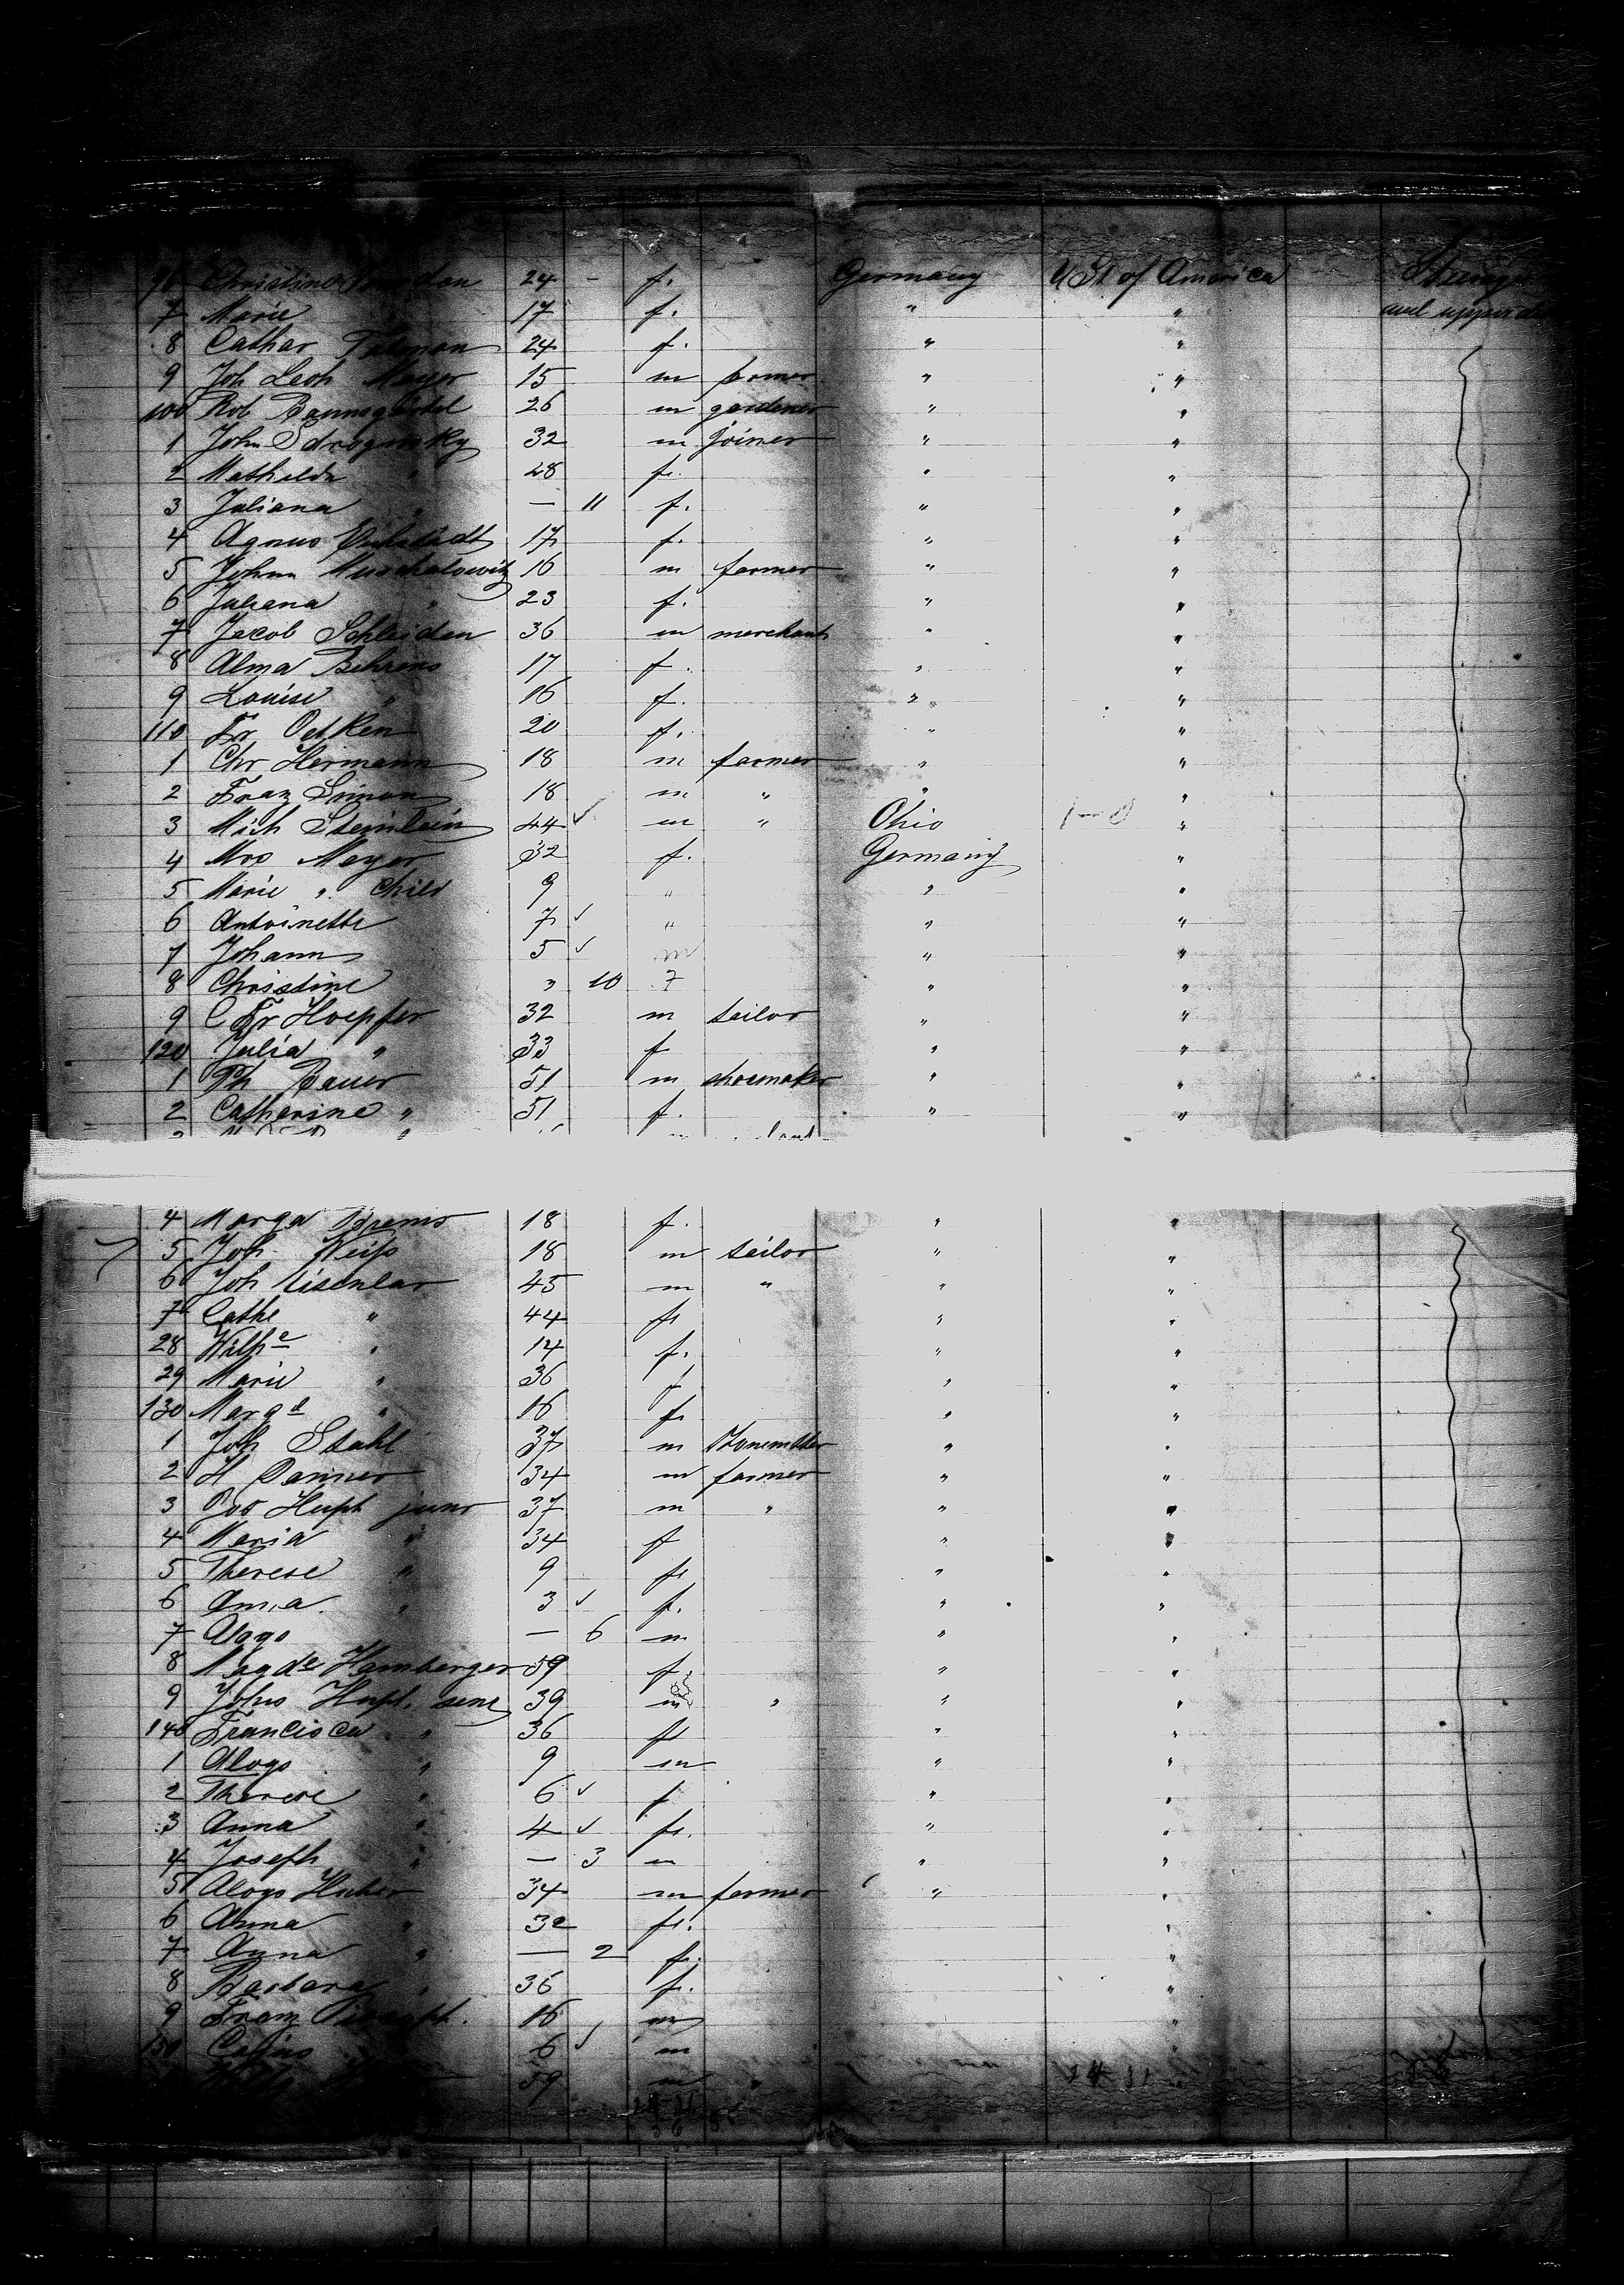 Christine 24 - f. Germany U St of America
7 Marie 17 f. " " and upper
8 Cathar 24 f. " "
9 Joh Leoh Mayer 15 m farmer " "
100 Rob Baumgärtel 26 m gardener " "
1 John 32 m joiner " "
2 Mathilda " 28 f. " "
3 Juliana " — 11 f. " "
4 Agnus 17 f. " "
5 Johann Muschalowitz 16 m farmer " "
6 Juliana " 23 f. " "
7 Jacob Schleiden 36 m merchant " "
8 Alma Behrens 17 f. " "
9 Louise " 16 f. " "
110 Fr Oetken 20 f. " "
1 Chr Hermann 18 m farmer " "
2 Franz Simon 18 m " " "
3 Mich Steinlein 44 ✓ m " Ohio "
4 Mrs Mayer 32 f. Germany "
5 Marie " child 9 " " "
6 Antoinette 7 ✓ " " "
7 Johann 5 ✓ m " "
8 Christine " 10 f " "
9 C Fr Hoepfer 32 m tailor " "
120 Julia " 33 f " "
1 Ph Bauer 51 m shoemaker " "
2 Catherine " 51 f. " "
4 Marga 18 f. " "
5 Joh. Weifs 18 m tailor " "
6 Joh Eisenlar 45 m " " "
7 Cathe " 44 f. " "
28 Wilhe " 14 f. " "
29 Marie " 36 f " "
130 Marge " 16 f. " "
1 Joh Stahl 37 m " "
2 H Danner 34 m farmer " "
3 Jos Hupt junr 37 m " " "
4 Maria " 34 f " "
5 Therese " 9 f. " "
6 Anna " 3 ✓ f. " "
7 — 6 m " "
8 Magde Hamberger 59 f. " "
9 Johs Hupt. senr 39 m " " "
140 Francisca " 36 f. " "
1 Aloys " 9 m " "
2 Therese " 6 ✓ f " "
3 Anna " 4 ✓ f. " "
4 Joseph " — 3 m " "
5 Aloys Huber 34 m farmer " "
6 Anna " 32 f. "
7 Anna " — 2 f. "
8 Barbara " 36 f. "
9 Franz 16 m "
150 6 ✓ m "
59 m